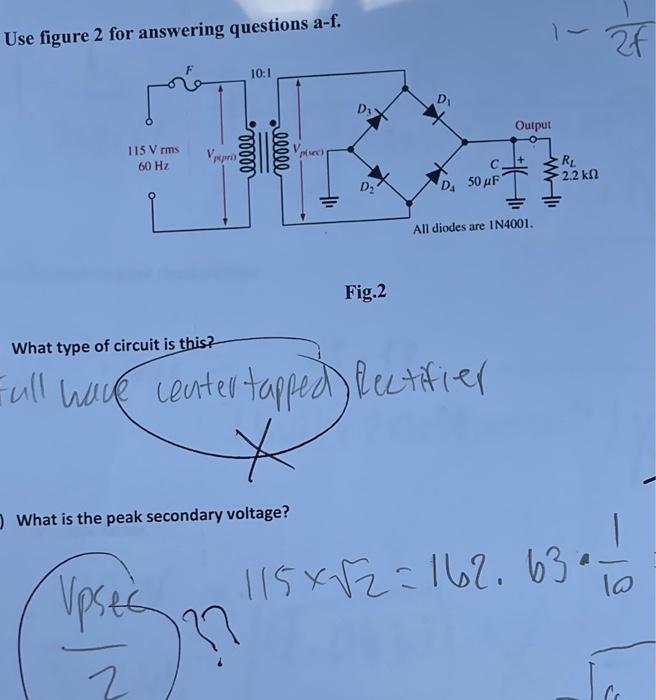 Use figure 2 for answering questions a-f.
1 - 1/2f
F
10:1
D3
D1
Output
115 V rms
60 Hz
Vp(pri)
Vp(sec)
C
+
50 μF
RL
2.2 kΩ
D2
D4
All diodes are 1N4001.
Fig.2
What type of circuit is this?
Full wave center tapped Rectifier
X
) What is the peak secondary voltage?
115 x √2 = 162.63 · 1/10
Vpsec/2 ??